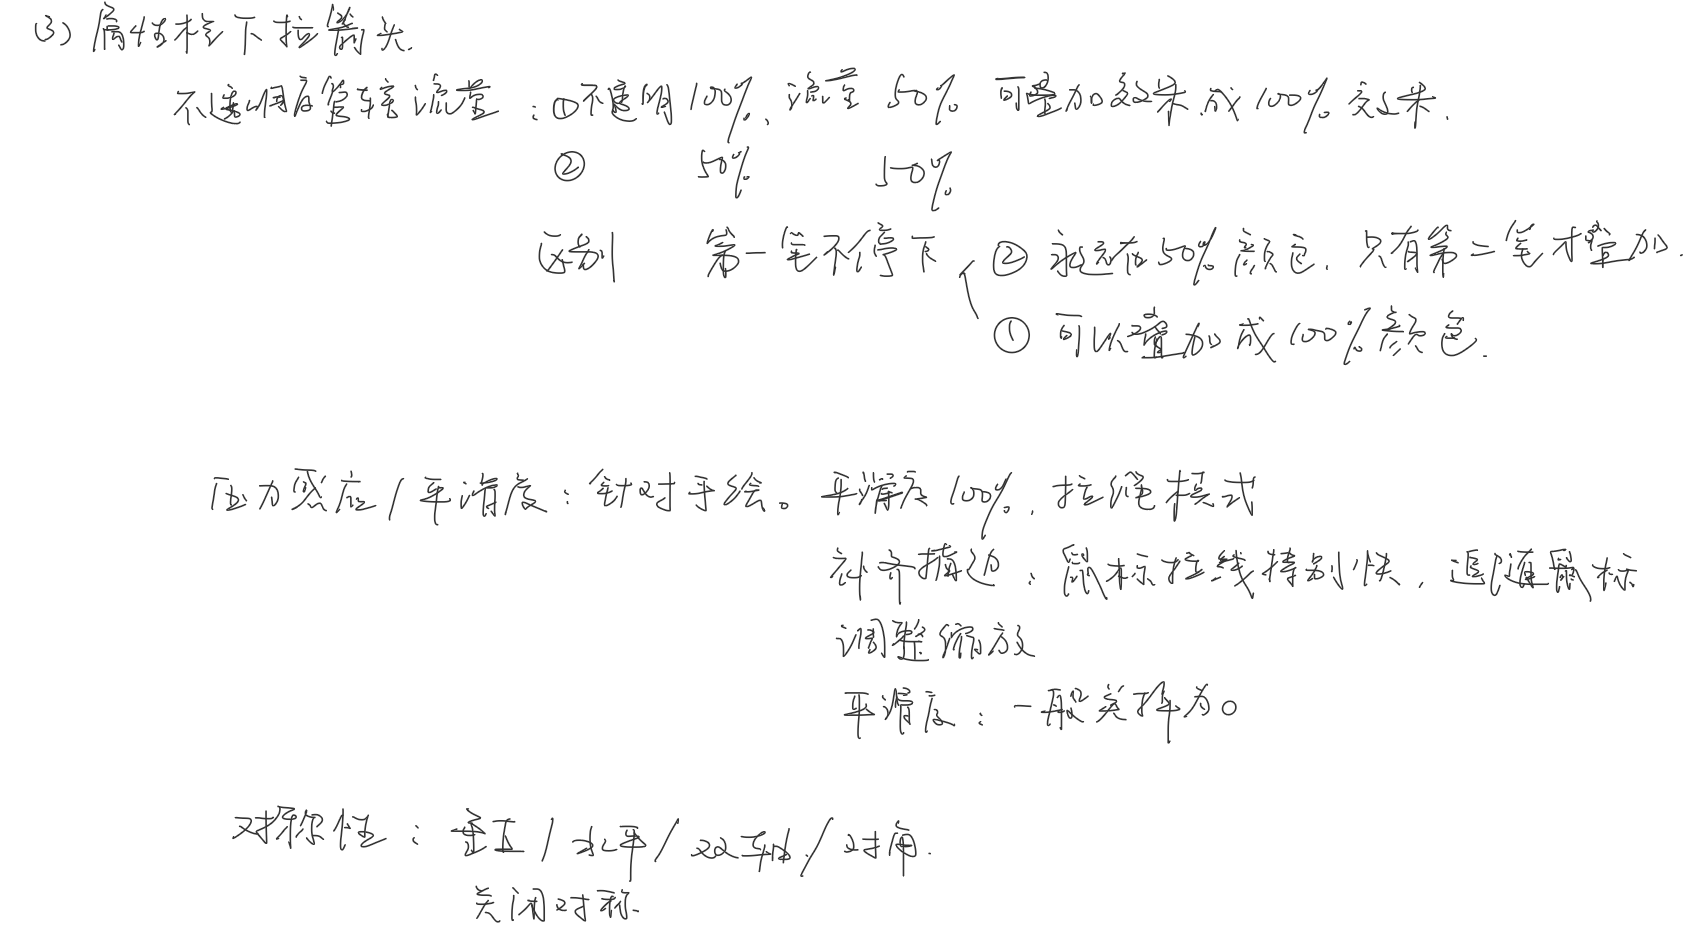 (3) 属性栏下拉箭头.
不透明度管辖流量:①不透明100%、流量 50% 可叠加效果.成100%效果.
② 50% 50%
区别 第一笔不停下 ② 永远在50%颜色. 只有第二笔才叠加.
① 可以叠加成100%颜色.
压力感应/平滑度:针对手绘。平滑度100%.拉绳模式
补齐描边:鼠标拉线特别快,追随鼠标
调整缩放
平滑度:一般关掉为0
对称性:垂直/水平/双轴/对角.
关闭对称.